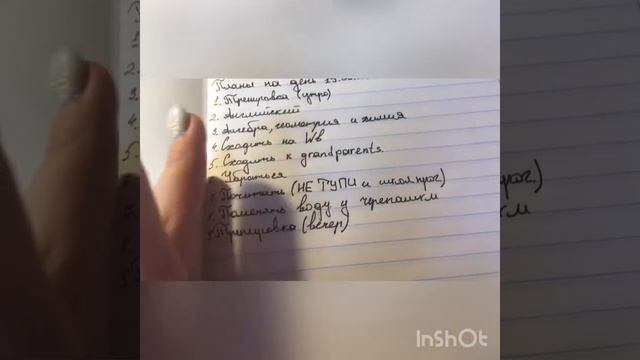 Планы на день
1. Тренировка (утро)
2. Английский
3. Алгебра, геометрия и химия
4. Сходить на Wb
5. Сходить к grandparents
Убраться
Почитать (НЕ ТУПИ и школ. прог.)
Поменять воду у черепашки
Тренировка (вечер)
InShOt